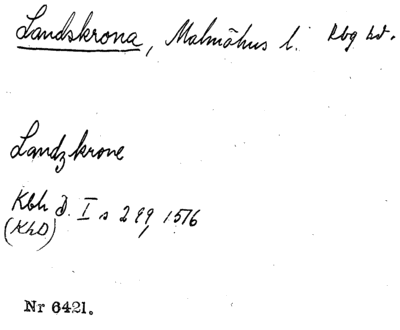 Landskrona, Malmöhus l. Rbg hd.
Landzkrone
Kbh D. I s 299, 1516
(KhD)
Nr 6421.